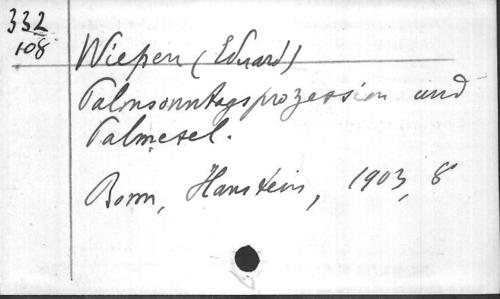 332
108
Wiepen (Eduard)
Palmsonntagsprozession und
Palmesel.
Bonn, Hanstein, 1903, 8